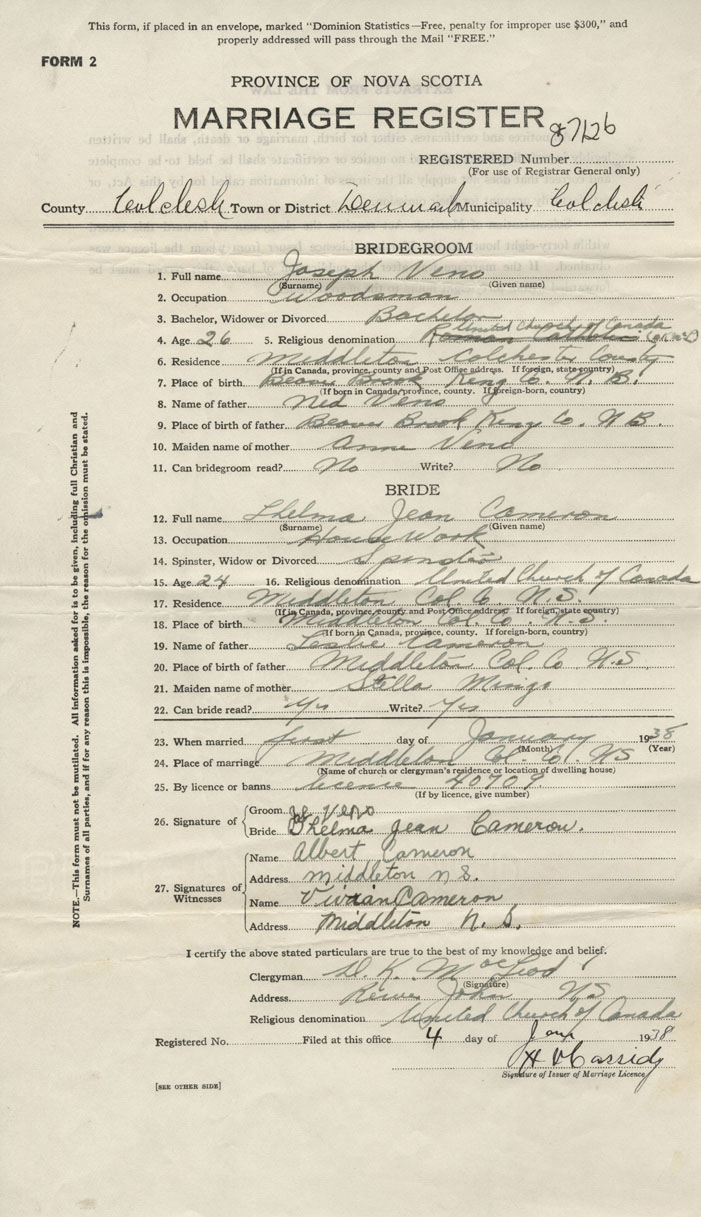 This form, if placed in an envelope, marked "Dominion Statistics—Free, penalty for improper use $300," and
properly addressed will pass through the Mail "FREE."
FORM 2
PROVINCE OF NOVA SCOTIA
MARRIAGE REGISTER
87126
REGISTERED Number
(For use of Registrar General only)
County Colchester Town or District Denmark Municipality Colchester
BRIDEGROOM
1. Full name Joseph Veno
(Surname) (Given name)
2. Occupation Woodsman
3. Bachelor, Widower or Divorced Bachelor
United Church of Canada
4. Age 26 5. Religious denomination Roman Catholic
6. Residence Middleton Colchester County
(If in Canada, province, county and Post Office address. If foreign, state country)
7. Place of birth Beaver Brook King Co. N. B.
(If born in Canada, province, county. If foreign-born, country)
8. Name of father Ned Veno
9. Place of birth of father Beaver Brook King Co. N B.
10. Maiden name of mother Anne Veno
11. Can bridegroom read? No Write? No
BRIDE
12. Full name Thelma Jean Cameron
(Surname) (Given name)
13. Occupation House Work
14. Spinster, Widow or Divorced Spinster
15. Age 24 16. Religious denomination United Church of Canada
17. Residence Middleton Col. Co N.S.
(If in Canada, province, county and Post Office address If foreign, state country)
18. Place of birth Middleton Col. Co. N.S.
(If born in Canada, province, county. If foreign-born, country)
19. Name of father Leslie Cameron
20. Place of birth of father Middleton Col. Co N.S
21. Maiden name of mother Stella Mingo
22. Can bride read? Yes Write? Yes
23. When married first day of January 1938
(Month) (Year)
24. Place of marriage Middleton Col. Co. NS
(Name of church or clergyman's residence or location of dwelling house)
25. By licence or banns licence 40709
(If by licence, give number)
26. Signature of
Groom Joe Veno
Bride Thelma Jean Cameron.
27. Signatures of Witnesses
Name Albert Cameron
Address middleton n S.
Name Vivian Cameron
Address Middleton N. S.
I certify the above stated particulars are true to the best of my knowledge and belief.
Clergyman D. K. MacLeod
(Signature)
Address River John N.S
Religious denomination United Church of Canada
Registered No. Filed at this office 4 day of Jany 1938
H V Cassidy
Signature of Issuer of Marriage Licence
[SEE OTHER SIDE]
NOTE.—This form must not be mutilated. All information asked for is to be given, including full Christian and
Surnames of all parties, and if for any reason this is impossible, the reason for the omission must be stated.